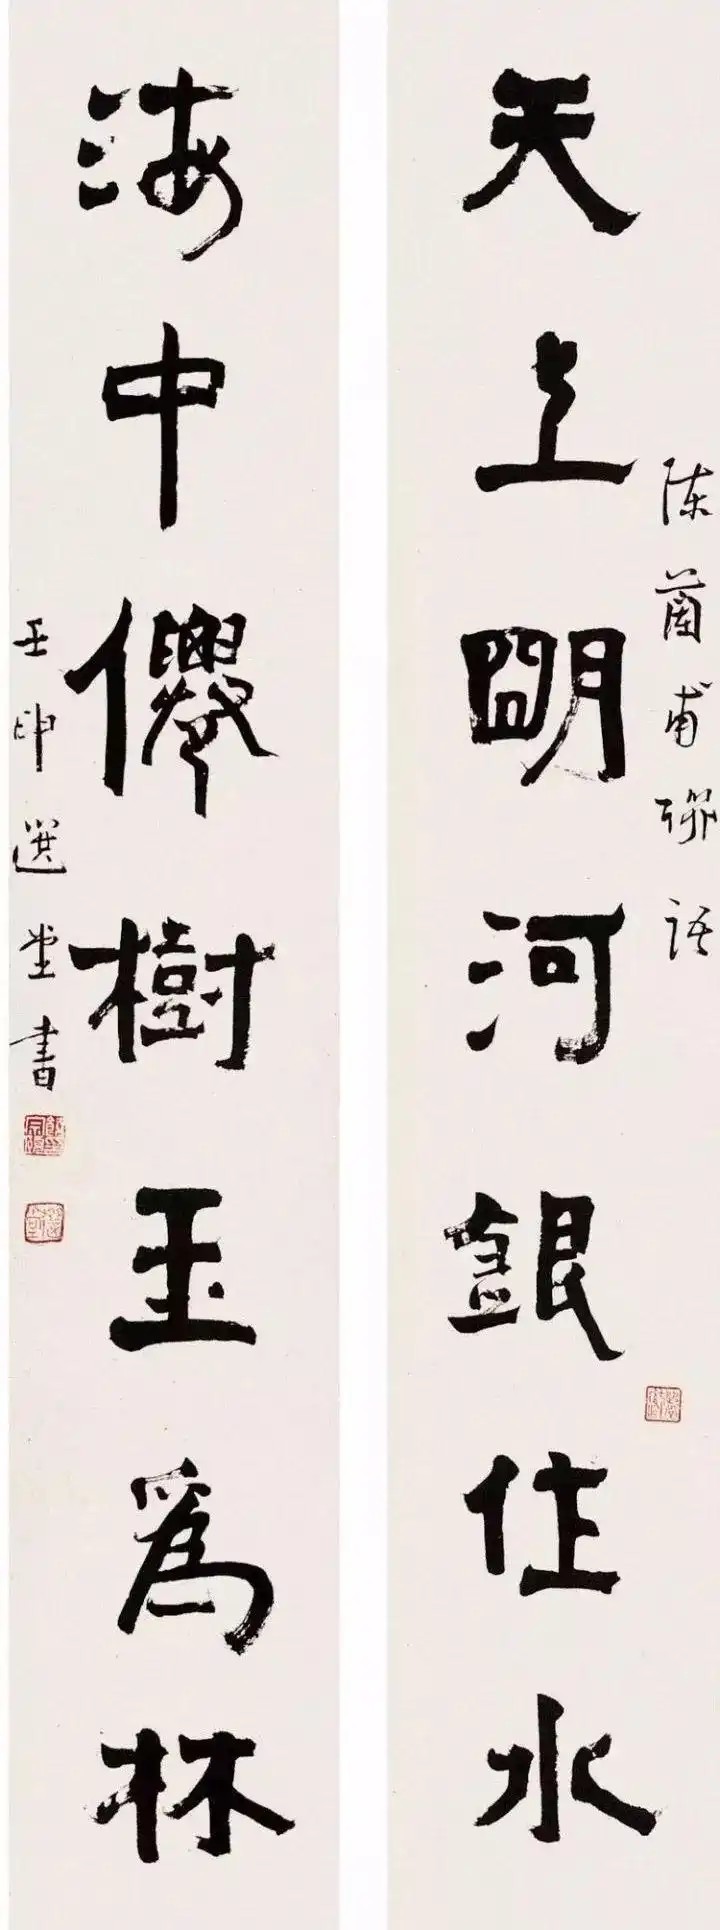 天上明河銀住水
陳蘭甫聯語
海中僊樹玉為林
壬申選堂書